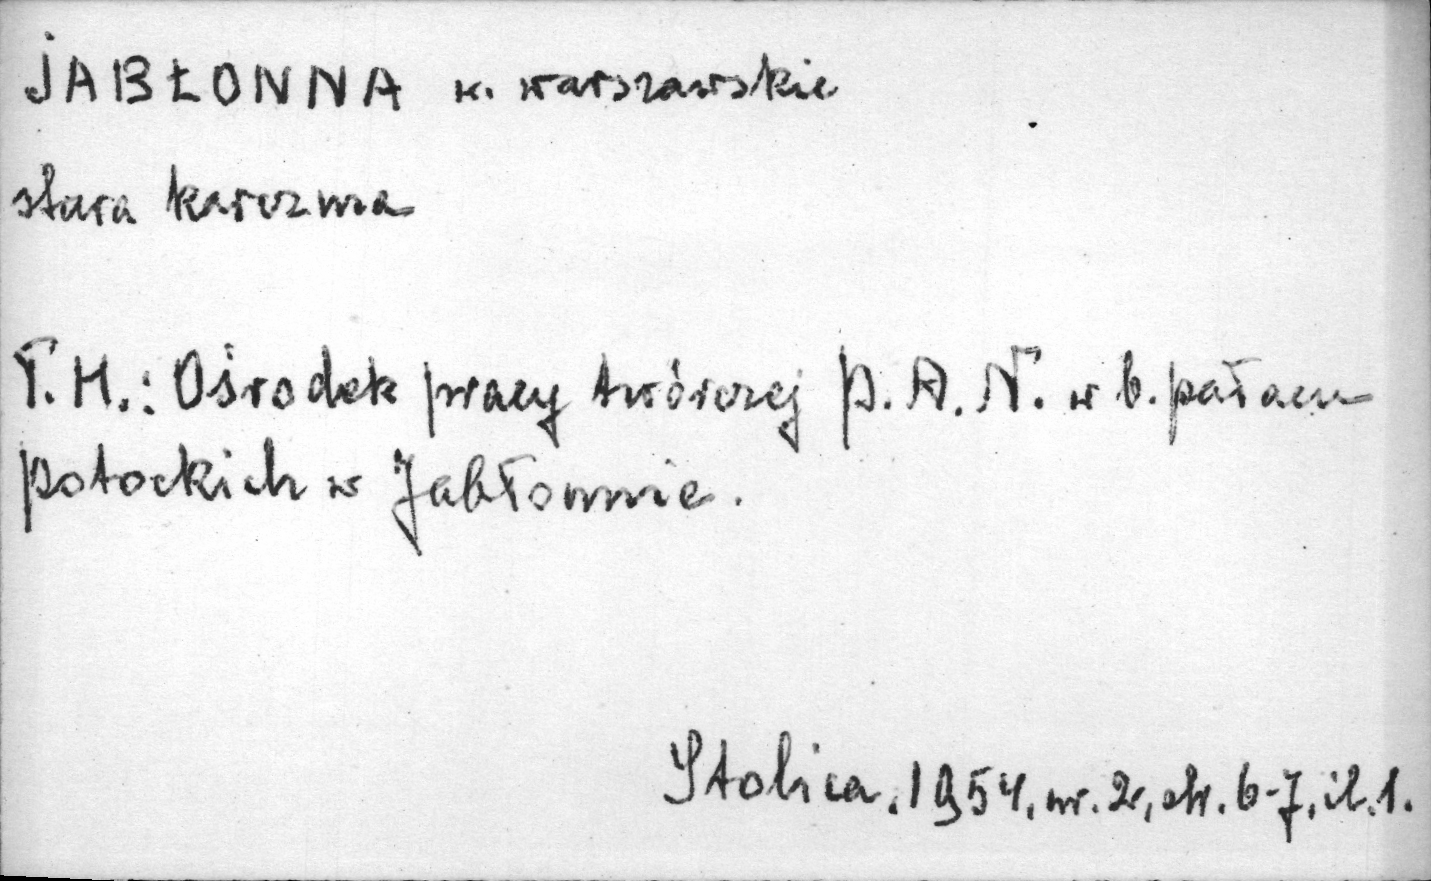 JABŁONNA w. warszawskie
stara karczma
T.H.: Ośrodek pracy twórczej P.A.N. w b. pałacu
Potockich w Jabłonnie.
Stolica, 1954, nr. 2, str. 6-7, il. 1.